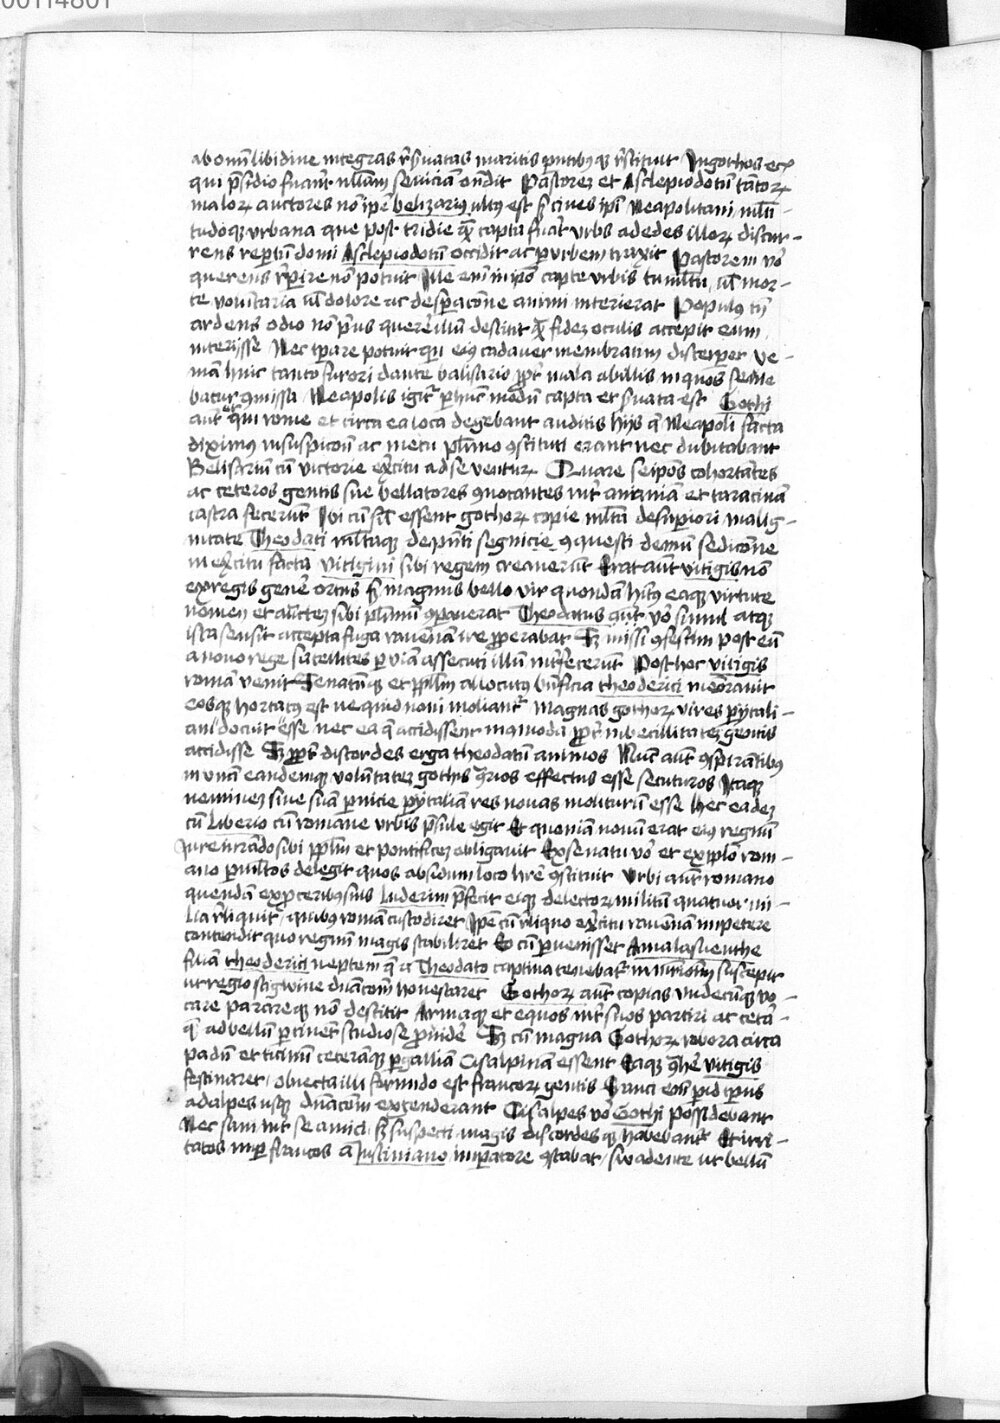 ab omni libidine integras reservatas maritis parentibusque restituit In gothos ecia
qui presidio fuerant nullam seviciam ostendit Pastorez et Asclepiodotum tantorum
malorum auctores non ipse belizarius ultus est sed cives ipsi Neapolitani multi-
tudoque urbana que post tridie quam capta fuerat urbs ad edes illorum discur-
rens repertum domi Asclepiodotum occidit ac per urbem traxit Pastorem vero
querens reperire non potuit Ille enim in ipso capte urbis tumultu vel mor-
te voluntaria vel dolore ac desperacione animi interierat Populus tamen
ardens odio non prius querere illum destitit quam fidez oculis accepit eum
interisse Nec temperare potuit quin eius cadaver membratim discerperet Ve-
niam huic tanto furori dante balisario propter mala ab illis in quos sevie
batur commissa Neapolis igitur per hunc modum capta et servata est Gothi
autem qui rome et circa ea loca degebant auditis hijs que Neapoli facta
diximus in suspicioni ac metu plurimo constituti erant nec dubitabant
Belisarium cum victorie exercitu ad se venturum Quare se ipsos cohortantes
ac ceteros gentis sue bellatores convocantes inter anxiniam et taracinam
castra fecerunt Ibi cum simul essent gothorum copie multa de superiori malig-
nitate Theodati multaque de presenti segnicie conquesti demum sedicione
in exercitu facta vitigini sibi regem creaverunt Erat autem vitigis non
ex regis genere ortus sed magnus bello vir quondam habitus eaque virtute
nomen et auctoritatez sibi plurimum comparaverat Theodatus autem vero simul atque
ista sensit accepta fuga ravenam ire properabat Sed missi confestim post eum
a novo rege satellites per viam assecuti illum interfecerunt Post hec vitigis
romam venit Senatumque et populum allocutus beneficia theoderici memoravit
eosque hortatus est ne quid novi moliantur magnas gothorum vires per ytali-
am docuit esse nec ea que accidissent in amodum propter imbecillitatez gentis
accidisse Sed propter discordes erga theodatum animos Nunc autem conspirantibus
in unam eandemque voluntatez gothis contrarios effectus esse secuturos Itaque
neminez sine sua pernicie per ytaliam res novas moliturum esse Hec eadez
cum Liberio tum romane urbis presule egit Et quoniam novum erat eius regnum
Iureiurando sibi populum et pontificez obligavit Ex senatu vero et ex populo rom-
ano permultos delegit quos absidum loco habere constituit Urbi autem romano
quendam ex proceribus suis Luderim prefecit eique delectorum militum quatuor mi-
lia reliquit quibus romam custodiret Ipse cum reliquo exercitu ravenam impetere
contendit quo regnum magis stabiliret Eo cum pervenisset Amalasuenthe
filiam theoderici neptem que a Theodato captiva tenebatur in matrimonium suscepit
ut regio stigmine dominacionem honestaret Gothorum autem copias undecumque vo-
care parareque non destitit Armaque et equos inter suos partiri ac cetera
que ad bellum pertinent studiose providere Sed cum magna Gothorum robora circa
padum et ticinum ceteramque per galliam Cisalpinam essent Eaque contrahere vitigis
festinaret obiecta illi formido est francorum gentis Franci enim per id tempus
ad alpes usque dominacionem extenderant Cisalpes vero Gothi possidebant
Nec sani inter se amici sed suspecti magis discordesque habebantur Et irri-
tatos nuper francos a Justiniano imperatore constabat suadente ut bellum